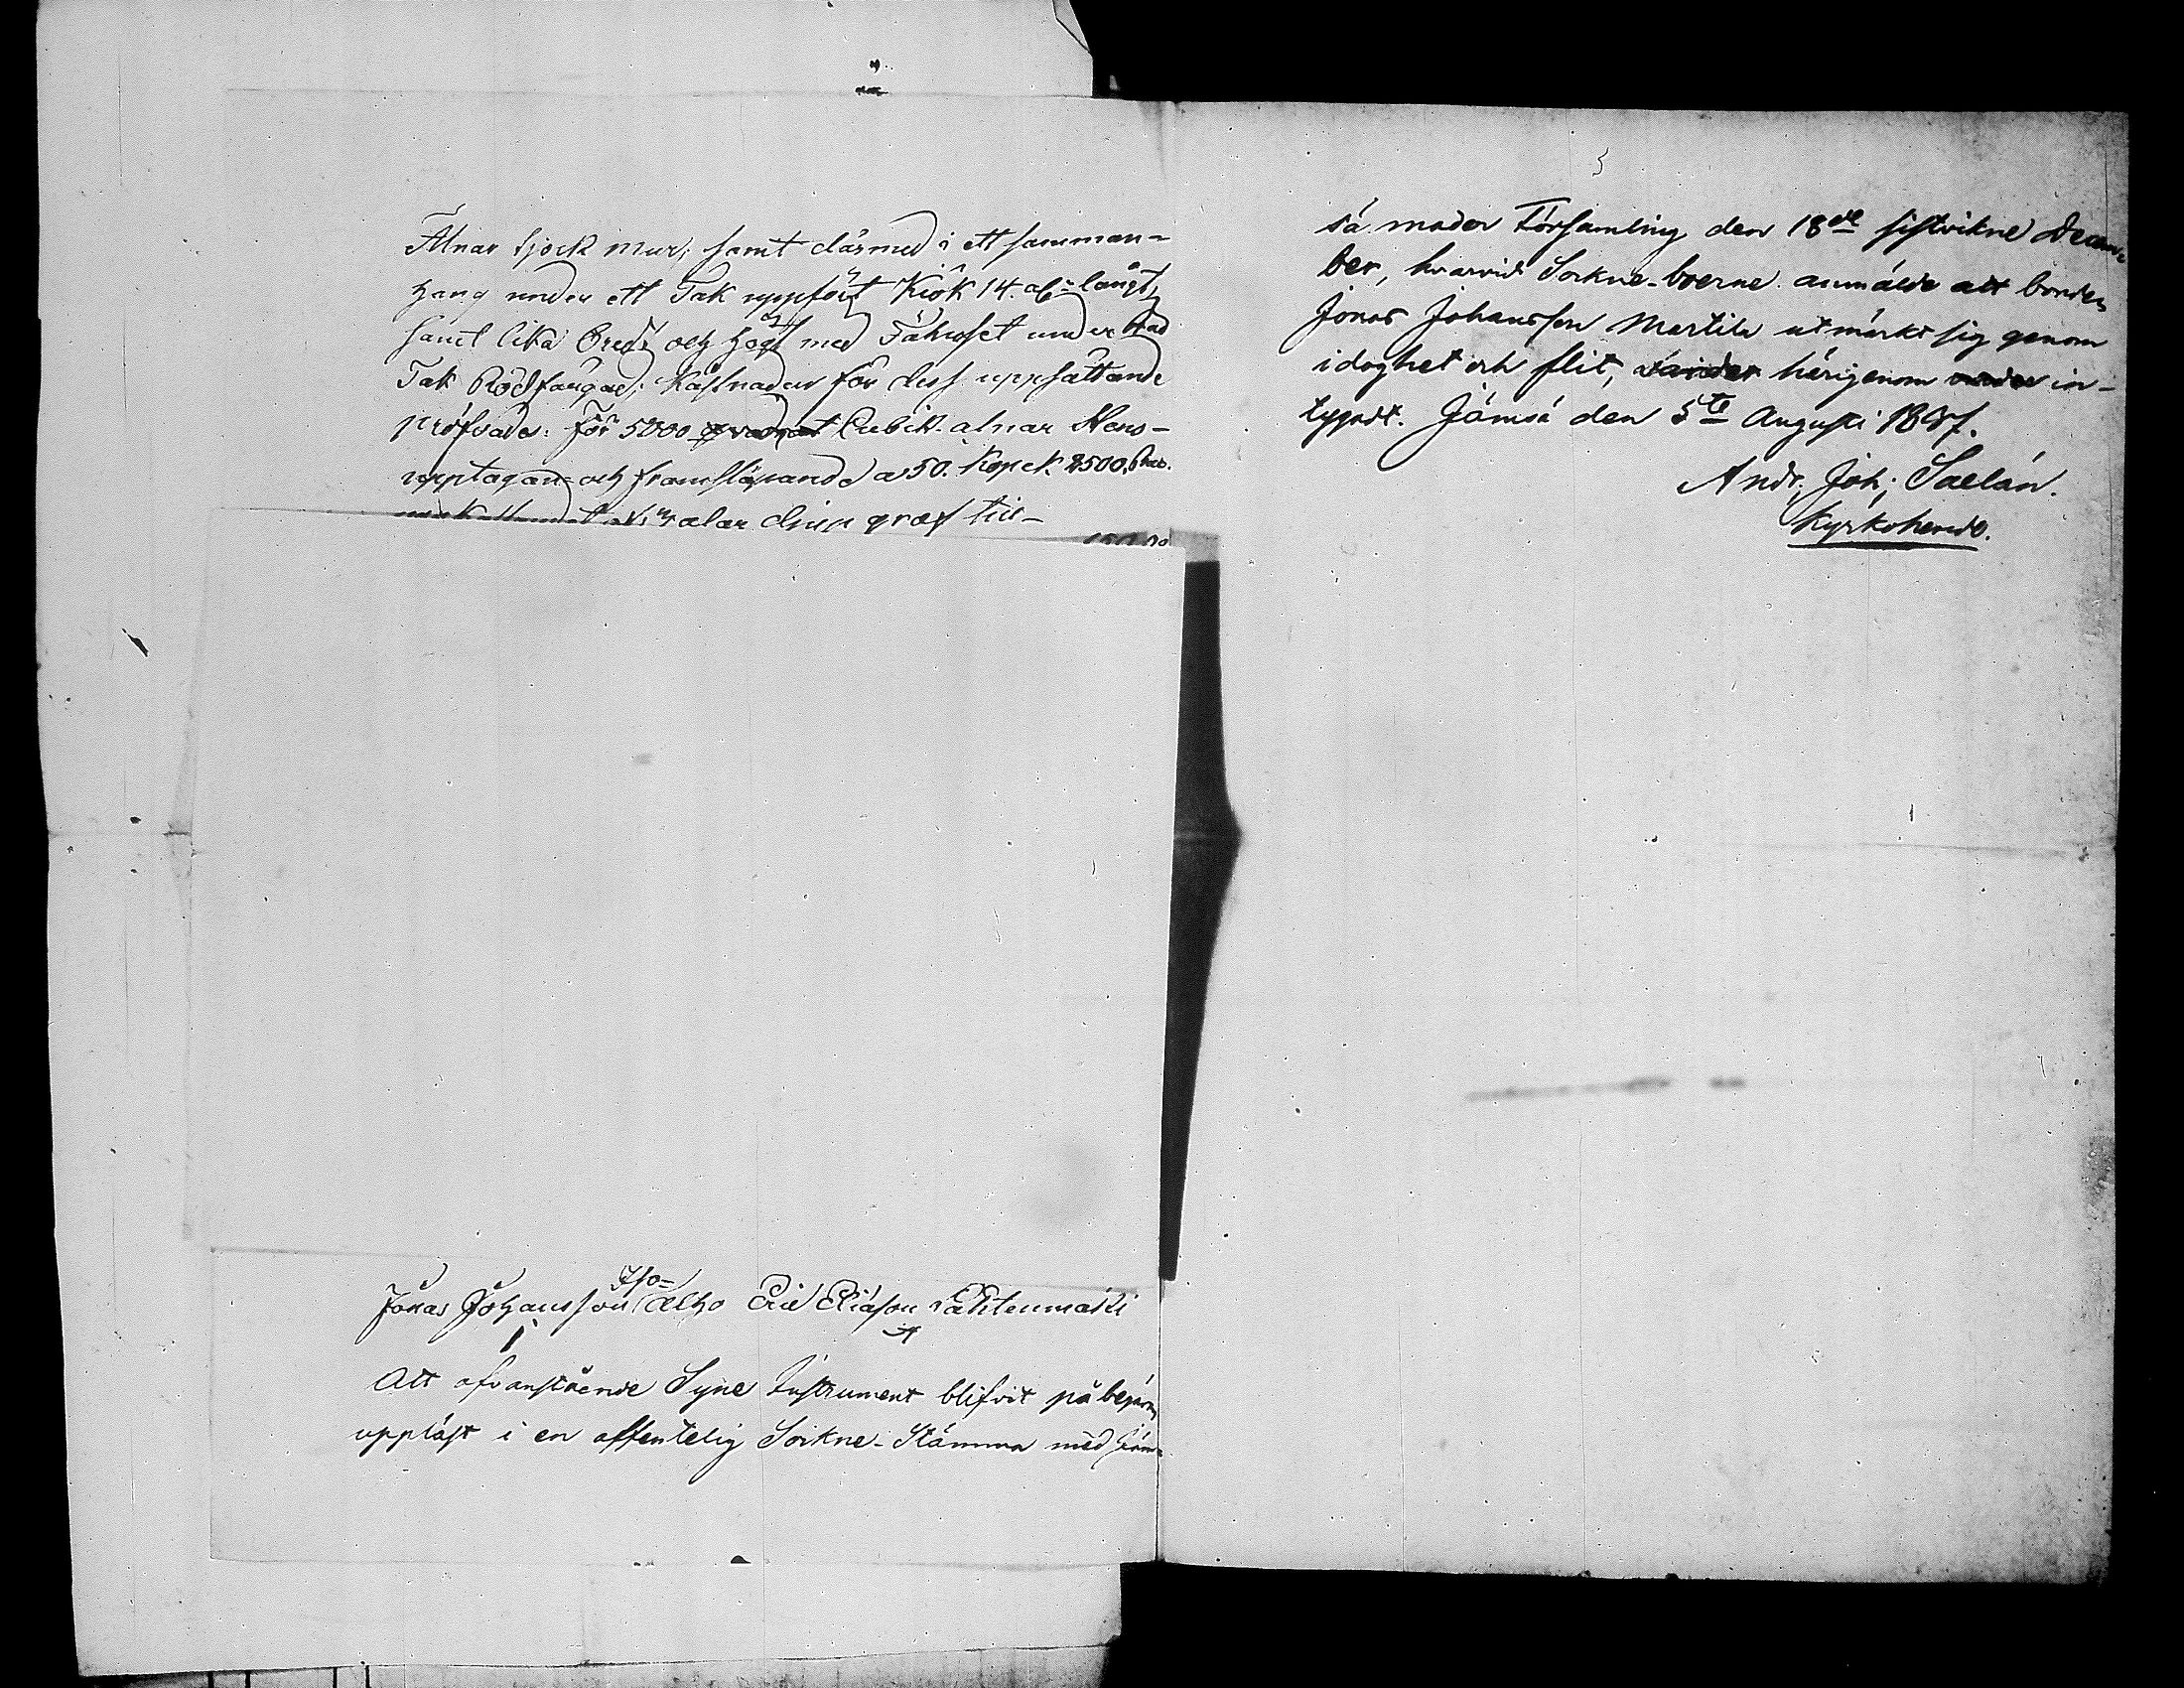 Alnar tjock mur; samt därmed i ett samman-
hang under ett Tak uppfört Kiök 14. al: långt,
samt lika Bredt och högt med Fähuset under Bräd
Tak Rödfärgad; Kåstnaden för dess uppsättande
pröfvades: För 5000 Cubik alnar Stens-
upptagan- och framsläpande a 50. Kopek 2500. Rub.
alar diup graf till-
Jonas Johansson Iso-
Alho Eric Eliason Vähtenmäki
Att ofvanstående Syne Instrument blifvit på begäran
uppläst i en offentelig Sockne-Stämma med Jäm-
3
sä moder Församling den 18de sistvikne Decem-
ber, hvarvid Sockne-boerne anmälde att bonden
Jonas Johansson Martila utmärkt sig genom
idoghet och flit, härigenom in-
tygadt. Jämsä den 5te Augusti
Andr. Joh. Saelán.
Kyrkoherde.